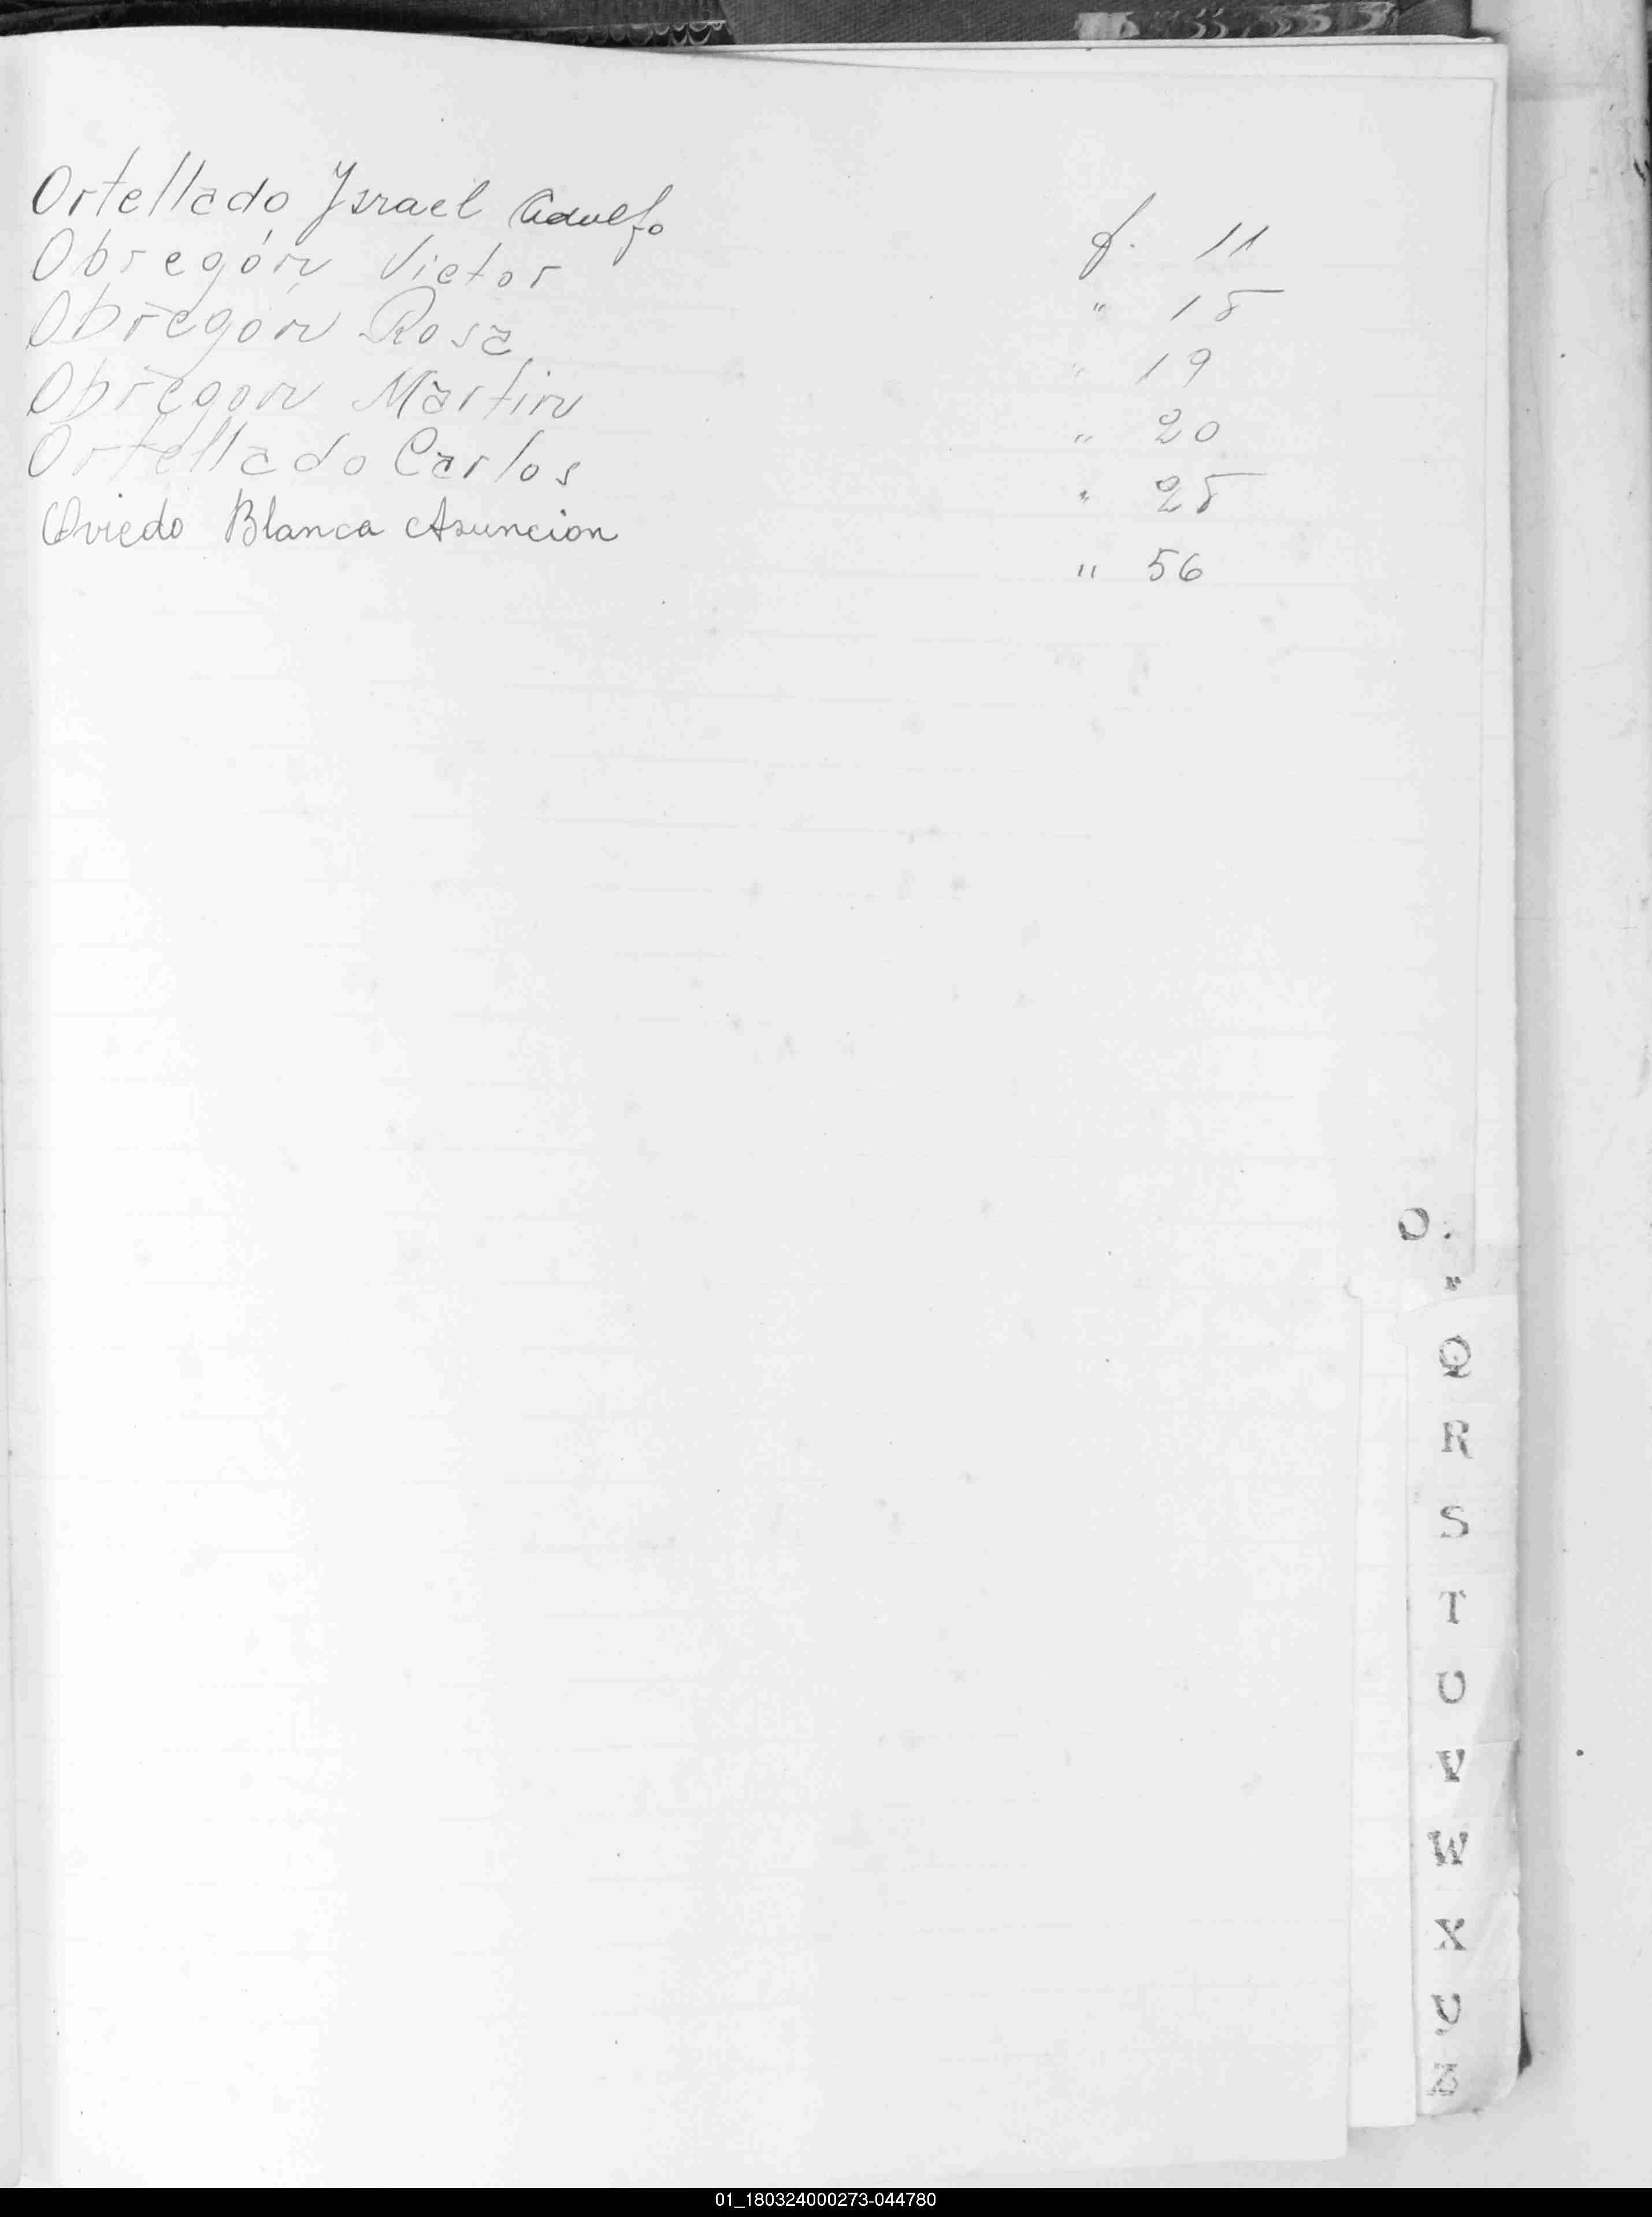 Ortellado Ysrael Adolfo f. 11
Obregón Victor " 15
Obregón Rosa " 19
Obregon Martin " 20
Ortellado Carlos " 25
Oviedo Blanca Asuncion " 56
O.
Q
R
S
T
U
V
W
X
Y
Z
01_180324000273-044780